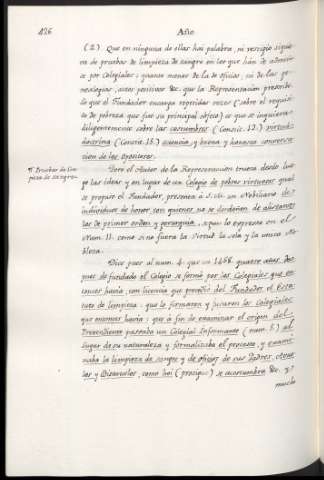 426 Año
(2) Que en ninguna de ellas hai palabra, ni vestigio siquie-
ra de pruebas de limpieza de sangre en los que han de admitir-
se por Colegiales; quanto menos de la de oficios, ni de las ge-
nealogias, actos positivos &c. que la Representacion
do que el Fundador encarga repetidas veces (sobre el requisi-
to de pobreza que fue su principal objeto) es que se inquieran
diligentemente sobre las costumbres (Constit. 12.) virtud:
doctrina (Constit. 18.) ciencia, y buena y honesta conversa-
cion de los Opositores.
¶. Pruebas de lim-
pieza de sangre.
Pero el Autor de la Representacion trueca desde lue-
go las ideas; y en lugar de un Colegio de pobres virtuosos qual
se propuso el Fundador, presenta a S. M. un Nobiliario de
individuos de honor con quienes no se desdeñen de alternar
los de primer orden y gerarquia, que lo expresa en el
Num. 11. como sino fuera la virtud la sola y la unica No-
bleza.
Dice pues al num. 4. que en 1468. quatro años des-
pues de fundado el Colegio se formó por los Colegiales que en-
tonces havia, con licencia que del Fundador el Esta-
tuto de limpieza: que lo formaron y juraron los Colegiales
que entonces havia: que á fin de examinar el origen del
Pretendiente pasaba un Colegial Informante (num. 5.) al
lugar de su naturaleza y formalizaba el proceso, y exami-
naba la limpieza de sangre y de oficios de sus Padres, Abue-
los y Bisabuelos, como hoi (prosigue) se acostumbra &c. y
mucho